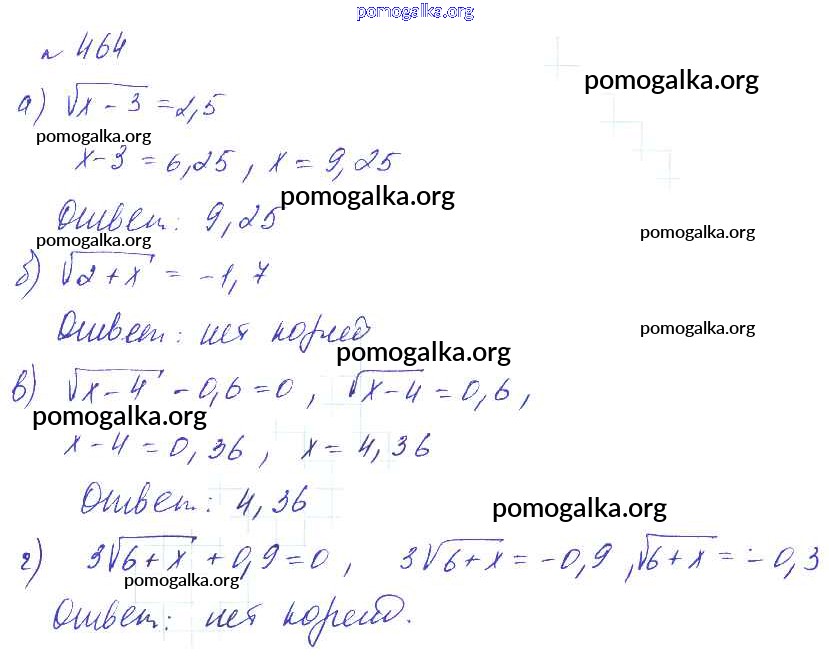 pomogalka.org
№ 464
pomogalka.org
а) √x - 3 = 2,5
pomogalka.org
x - 3 = 6,25 , x = 9,25
pomogalka.org
Ответ: 9,25
pomogalka.org
pomogalka.org
б) √2 + x = -1,7
Ответ: нет корней
pomogalka.org
pomogalka.org
в) √x - 4 - 0,6 = 0 , √x - 4 = 0,6 ,
pomogalka.org
x - 4 = 0,36 , x = 4,36
Ответ: 4,36
pomogalka.org
г) 3√6 + x + 0,9 = 0 , 3√6 + x = -0,9 , √6 + x = -0,3
pomogalka.org
Ответ: нет корней.